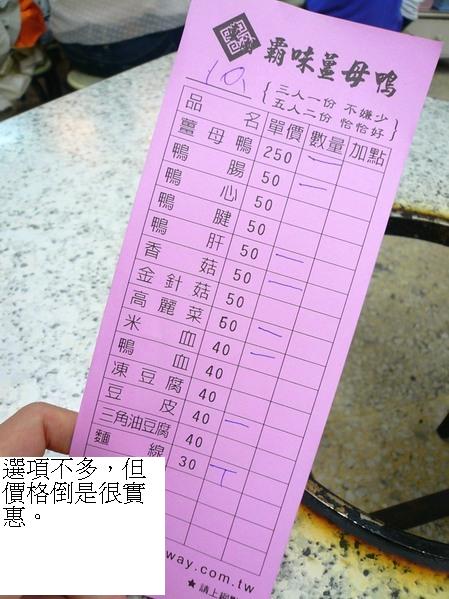 霸味薑母鴨
三人一份 不嫌少
五人二份 恰恰好
品名 單價 數量 加點
薑母鴨 250 一
鴨腸 50 一
鴨心 50
鴨腱 50
鴨肝 50 一
香菇 50 一
金針菇 50
高麗菜 50 一
米血 40 一
鴨血 40
凍豆腐 40
豆皮 40 一
三角油豆腐 40
麵線 30 T
way.com.tw
★請上網
選項不多，但
價格倒是很實
惠。